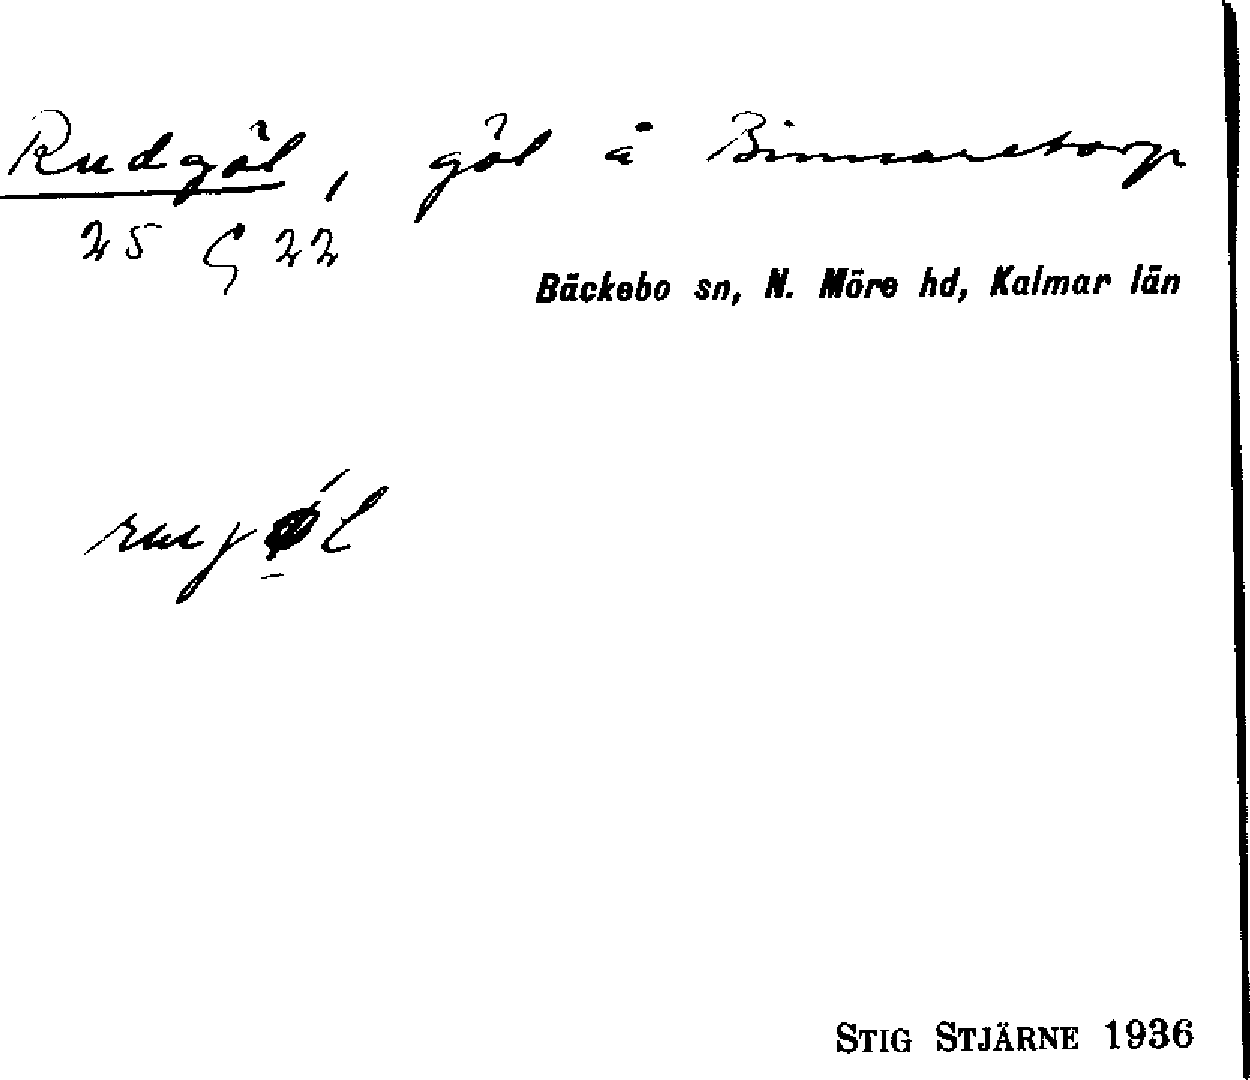 Rudgöl, göl å Binnaretorp
25 G 22
Bäckebo sn, N. Möre hd, Kalmar län
rujøl
STIG STJÄRNE 1936